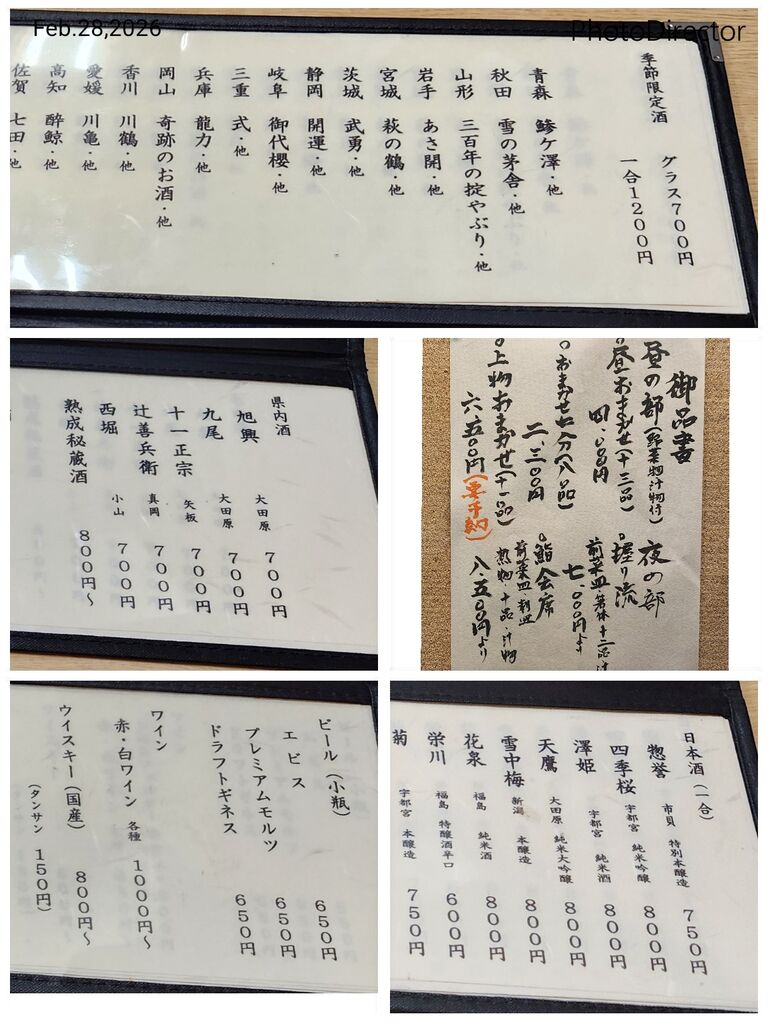 Feb.28,2026
PhotoDirector
季節限定酒
グラス700円
一合1200円
青森 鰺ケ澤・他
秋田 雪の茅舎・他
山形 三百年の掟やぶり・他
岩手 あさ開・他
宮城 萩の鶴・他
茨城 武勇・他
静岡 開運・他
岐阜 御代櫻・他
三重 弌・他
兵庫 龍力・他
岡山 奇跡のお酒・他
香川 川鶴・他
愛媛 川亀・他
高知 酔鯨・他
佐賀 七田・他
県内酒
旭興 大田原 700円
九尾 大田原 700円
十一正宗 矢板 700円
辻善兵衛 真岡 700円
西堀 小山 700円
熟成秘蔵酒 800円~
御品書
昼の部(野菜物汁物付)
昼おまかせ(十三品)
四、〇〇〇円
おまかせ七分(八品)
二、三〇〇円
上物おまかせ(十一品)
六、五〇〇円(要予納)
夜の部
握り流
前菜皿・箸休 十二品 汁
七、〇〇〇円より
鮨会席
前菜皿・刺皿
熱物・十品・汁物
八、五〇〇円より
ビール(小瓶)
エビス 650円
プレミアムモルツ 650円
ドラフトギネス 650円
ワイン
赤・白ワイン 各種 1000円~
ウイスキー(国産) 800円~
(タンサン 150円)
日本酒(一合)
惣誉 市貝 特別本醸造 750円
四季桜 宇都宮 純米吟醸 800円
澤姫 宇都宮 純米酒 800円
天鷹 大田原 純米大吟醸 800円
雪中梅 新潟 本醸造 800円
花泉 福島 純米酒 800円
栄川 福島 特醸酒辛口 600円
菊 宇都宮 本醸造 750円